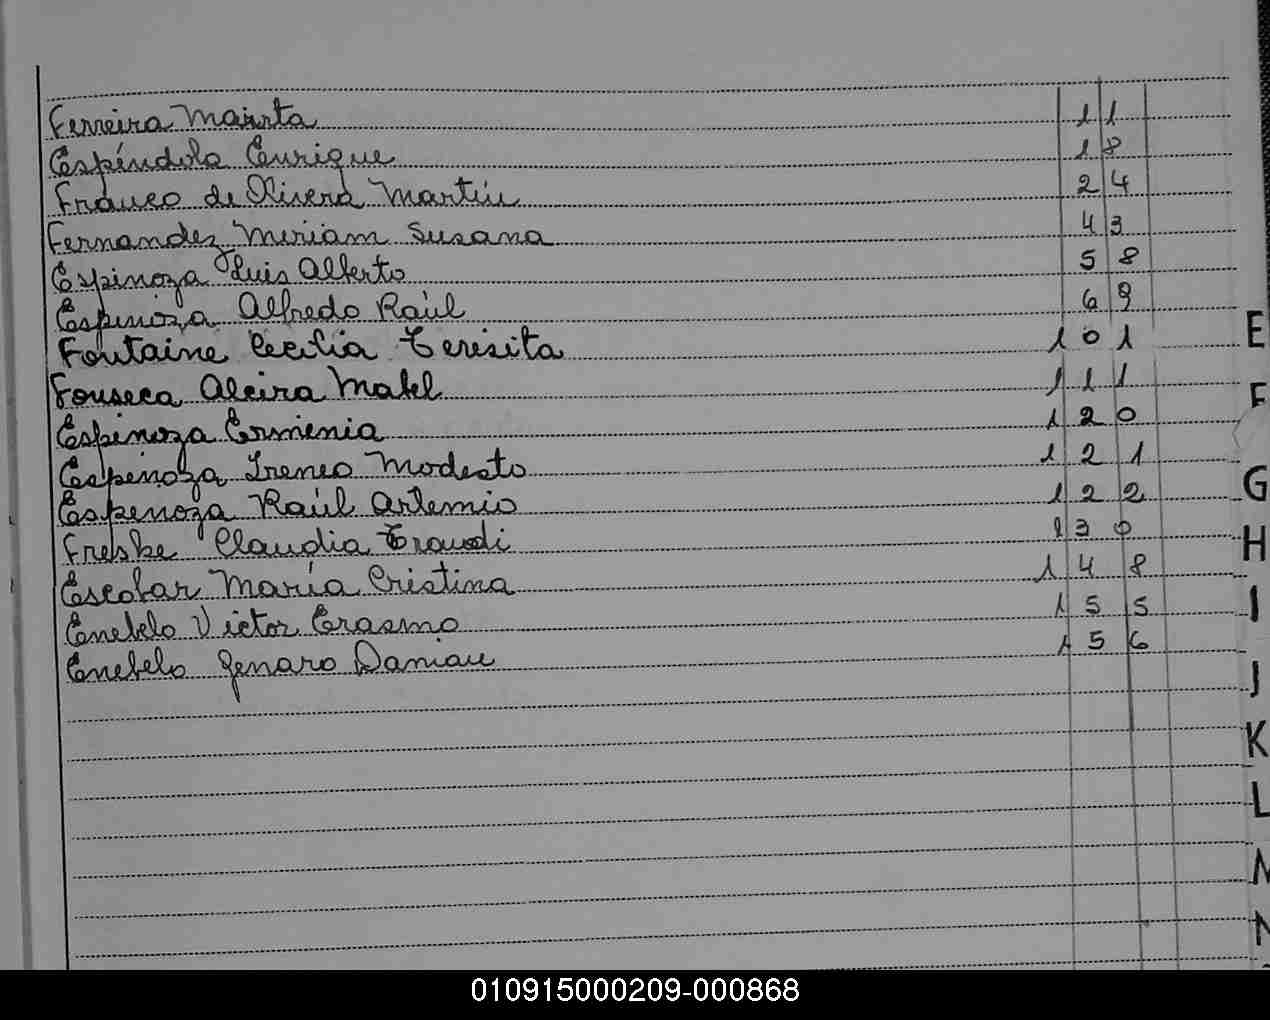 Ferreira Marirta 11
Espíndola Enrique 18
Franco de Olivera Martín 24
Fernandez Miriam Susana 43
Espinoza Luis Alberto 58
Espinoza Alfredo Raúl 69
Fontaine Cecilia Teresita 101
E
Fonseca Alcira Mabel 111
F
Espinoza Erminia 120
Espinoza Ireneo Modesto 121
Espinoza Raúl Artemio 122
G
Freske Claudia Traudi 130
H
Escobar María Cristina 148
I
Enebelo Victor Erasmo 155
Enebelo Genaro Damian 156
J
K
L
M
N
010915000209-000868